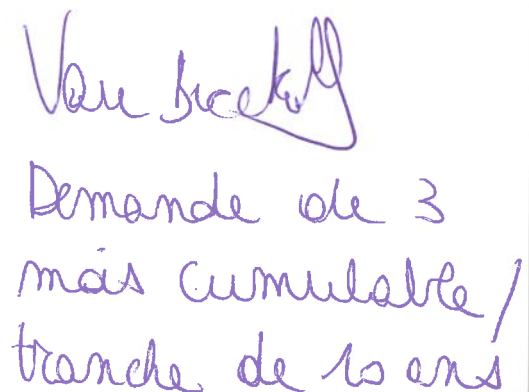 Van
Demande de 3
mois cumulable/
tranche de 10 ans